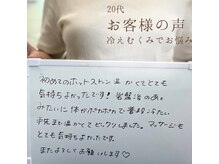 20代
お客様の声
冷えむくみでお悩み
初めてのホットストーン温かくてとても
気持ちよかったです!岩盤浴のあと
みたいに体がポカポカで
手先まで温かくてビックリしました。マッサージも
とても気持ちよかったです。
またよろしくお願いします♡